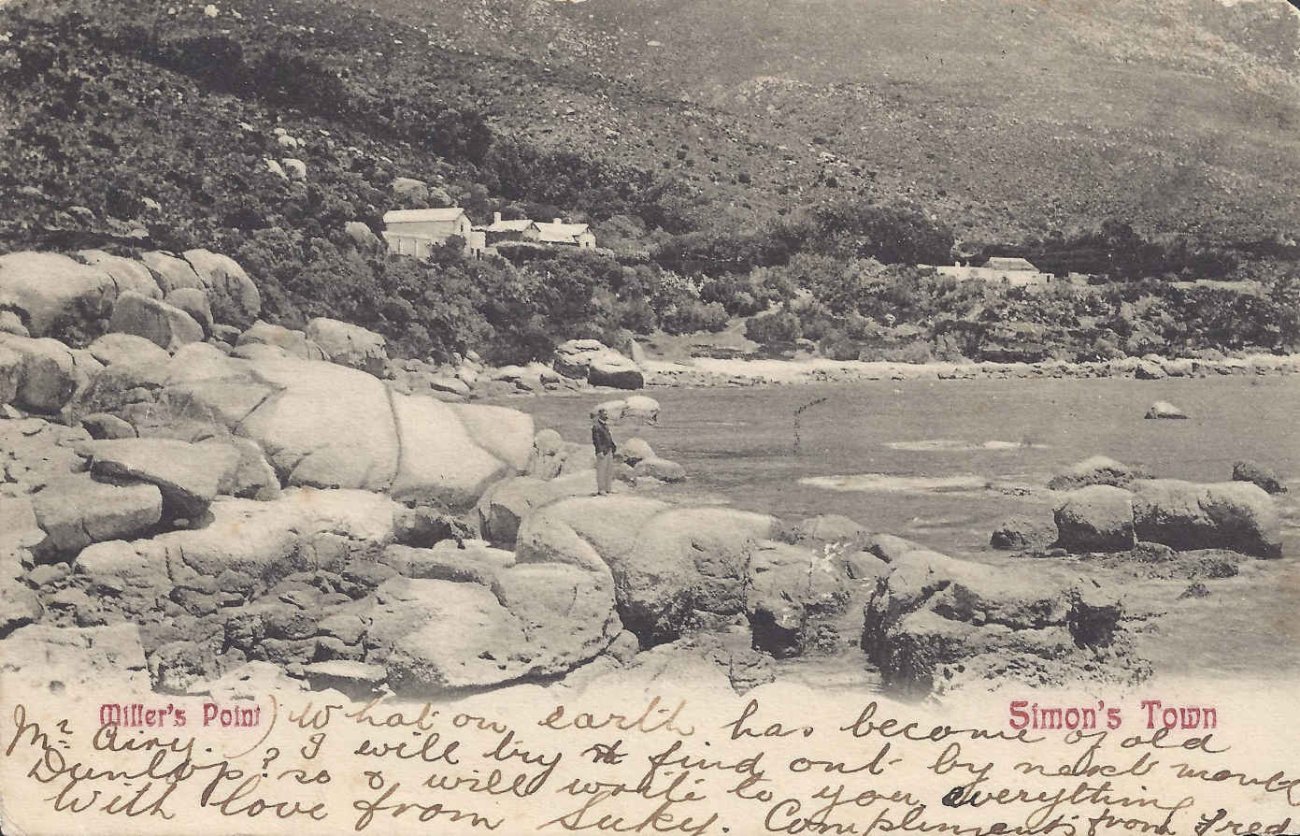 Miller's Point
Simon's Town
Mr. Airy.) What on earth has become of old
Dunlop? I will try to find out by next
so & will write to you everything
With love from Suky. Compliments from Fred